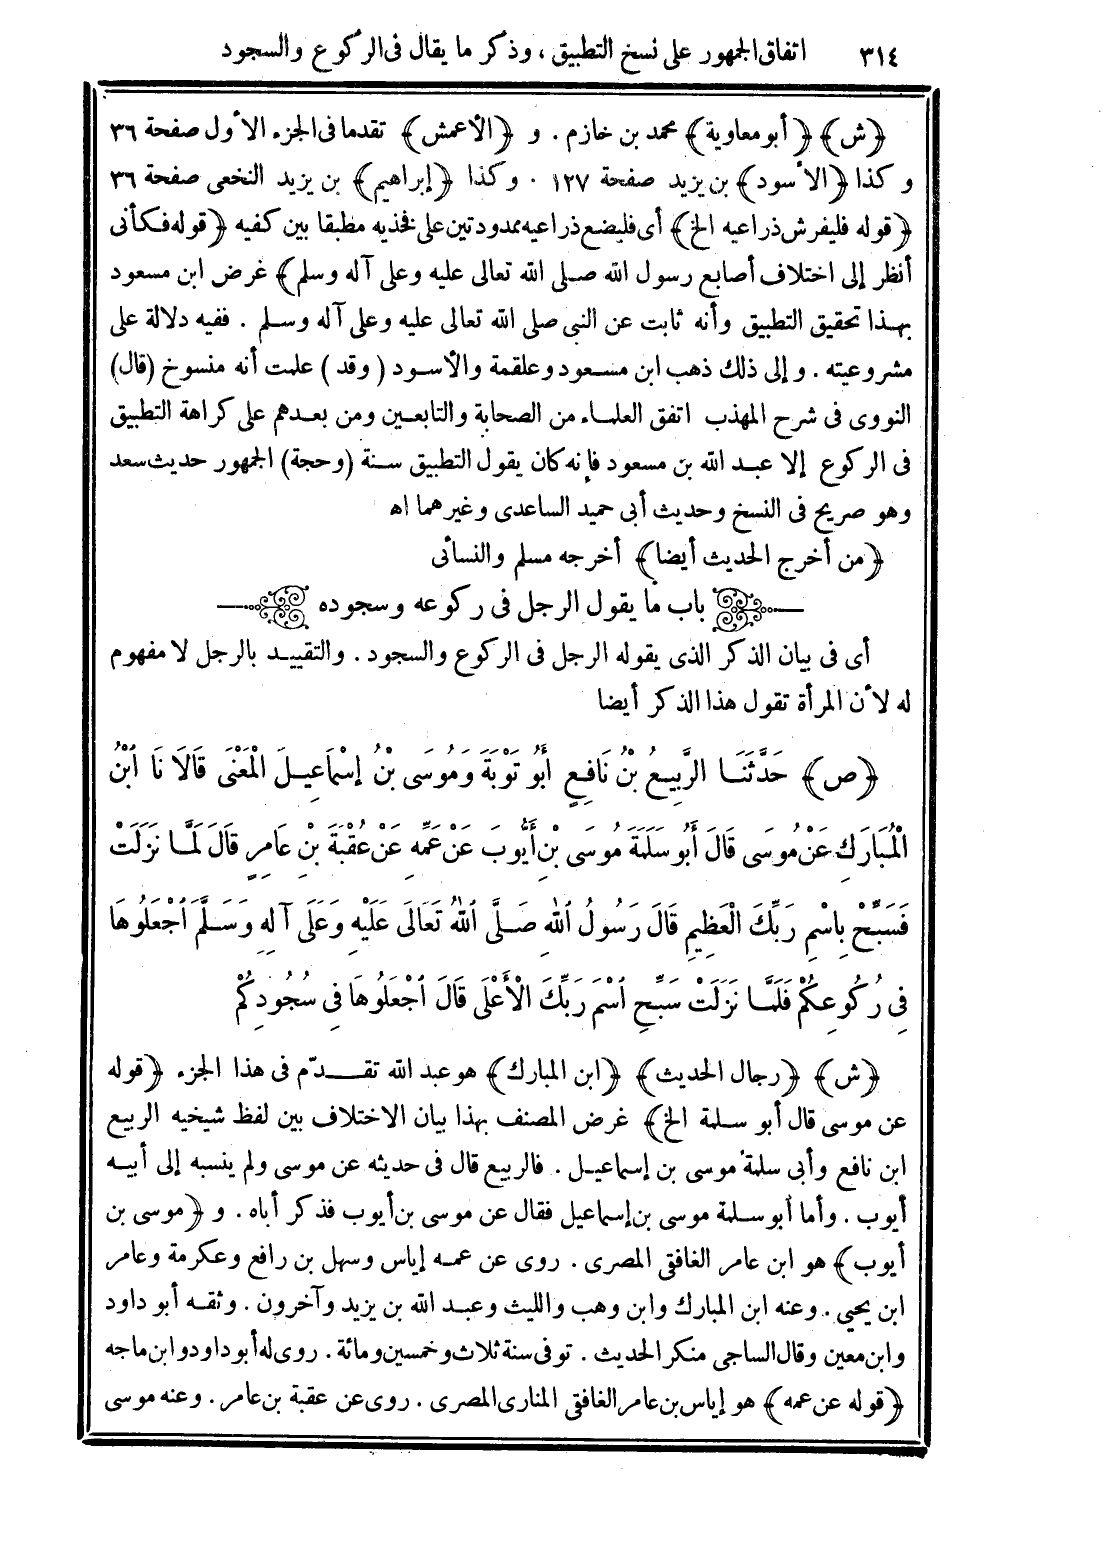 ٣١٤ اتفاق الجمهور على نسخ التطبيق ، وذكر ما يقال فى الركوع والسجود
﴿ش﴾ ﴿أبو معاوية﴾ محمد بن خازم . و ﴿الأعمش﴾ تقدما فى الجزء الأول صفحة ٣٦
وكذا ﴿الأسود﴾ بن يزيد صفحة ١٢٧ . وكذا ﴿إبراهيم﴾ بن يزيد النخعى صفحة ٣٦
﴿قوله فليفرش ذراعيه الخ﴾ أى فليضع ذراعيه ممدودتين على فخذيه مطبقا بين كفيه ﴿قوله فكأنى
أنظر إلى اختلاف أصابع رسول الله صلى الله تعالى عليه وعلى آله وسلم﴾ غرض ابن مسعود
بهذا تحقيق التطبيق وأنه ثابت عن النبى صلى الله تعالى عليه وعلى آله وسلم . ففيه دلالة على
مشروعيته . وإلى ذلك ذهب ابن مسعود وعلقمة والأسود (وقد) علمت أنه منسوخ (قال)
النووى فى شرح المهذب اتفق العلماء من الصحابة والتابعين ومن بعدهم على كراهة التطبيق
فى الركوع إلا عبد الله بن مسعود فإنه كان يقول التطبيق سنة (وحجة) الجمهور حديث سعد
وهو صريح فى النسخ وحديث أبى حميد الساعدى وغيرهما اه
﴿من أخرج الحديث أيضا﴾ أخرجه مسلم والنسائى
باب ما يقول الرجل فى ركوعه وسجوده
أى فى بيان الذكر الذى يقوله الرجل فى الركوع والسجود . والتقييد بالرجل لا مفهوم
له لأن المرأة تقول هذا الذكر أيضا
﴿ص﴾ حَدَّثَنَا الرَّبِيعُ بْنُ نَافِعٍ أَبُو تَوْبَةَ وَمُوسَى بْنُ إِسْمَاعِيلَ الْمَعْنَى قَالَا نَا ابْنُ
الْمُبَارَكِ عَنْ مُوسَى قَالَ أَبُو سَلَمَةَ مُوسَى بْنِ أَيُّوبَ عَنْ عَمِّهِ عَنْ عُقْبَةَ بْنِ عَامِرٍ قَالَ لَمَّا نَزَلَتْ
فَسَبِّحْ بِاسْمِ رَبِّكَ الْعَظِيمِ قَالَ رَسُولُ اللهِ صَلَّى اللهُ تَعَالَى عَلَيْهِ وَعَلَى آلِهِ وَسَلَّمَ اجْعَلُوهَا
فِى رُكُوعِكُمْ فَلَمَّا نَزَلَتْ سَبِّحِ اسْمَ رَبِّكَ الْأَعْلَى قَالَ اجْعَلُوهَا فِى سُجُودِكُمْ
﴿ش﴾ ﴿رجال الحديث﴾ ﴿ابن المبارك﴾ هو عبد الله تقدّم فى هذا الجزء ﴿قوله
عن موسى قال أبو سلمة الخ﴾ غرض المصنف بهذا بيان الاختلاف بين لفظ شيخيه الربيع
ابن نافع وأبى سلمة موسى بن إسماعيل . فالربيع قال فى حديثه عن موسى ولم ينسبه إلى أبيه
أيوب . وأما أبو سلمة موسى بن إسماعيل فقال عن موسى بن أيوب فذكر أباه . و ﴿موسى بن
أيوب﴾ هو ابن عامر الغافقى المصرى . روى عن عمه إياس وسهل بن رافع وعكرمة وعامر
ابن يحيى . وعنه ابن المبارك وابن وهب والليث وعبد الله بن يزيد وآخرون . وثقه أبو داود
وابن معين وقال الساجى منكر الحديث . توفى سنة ثلاث وخمسين ومائة . روى له أبو داود وابن ماجه
﴿قوله عن عمه﴾ هو إياس بن عامر الغافقى المنارى المصرى . روى عن عقبة بن عامر . وعنه موسى